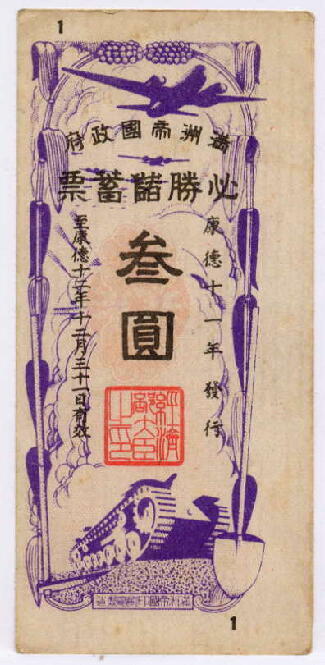 1
滿洲帝國政府
必勝儲蓄票
康德十一年發行
叁圓
至康德十二年十二月三十一日有效
經濟部大臣之印
1